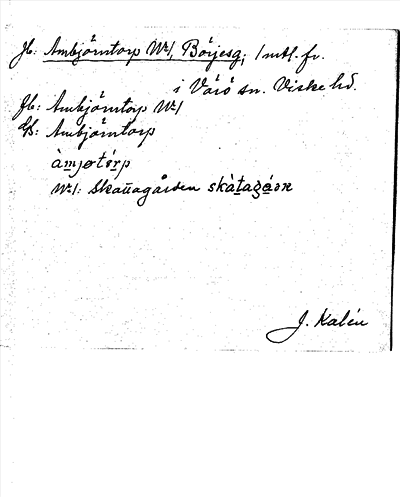 Jb: Ambjörntorp Nr 1, Börjesg., 1 mtl. fr.
i Värö sn. Viske hd.
Jb: Ambjörntorp Nr 1
Us: Ambjörntorp
àmjøtórp
Nr 1: Skattagården skàtagáɷn
J. Kalén